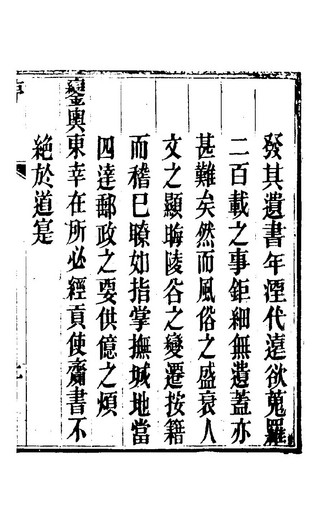 發其遺書年湮代遠欲蒐羅
二百載之事鉅細無遺蓋亦
甚難矣然而風俗之盛衰人
文之顯晦陵谷之變遷按籍
而稽已瞭如指掌撫城地當
四達郵政之要供億之煩
鑾輿東幸在所必經貢使齎書不
絕於道寔
序